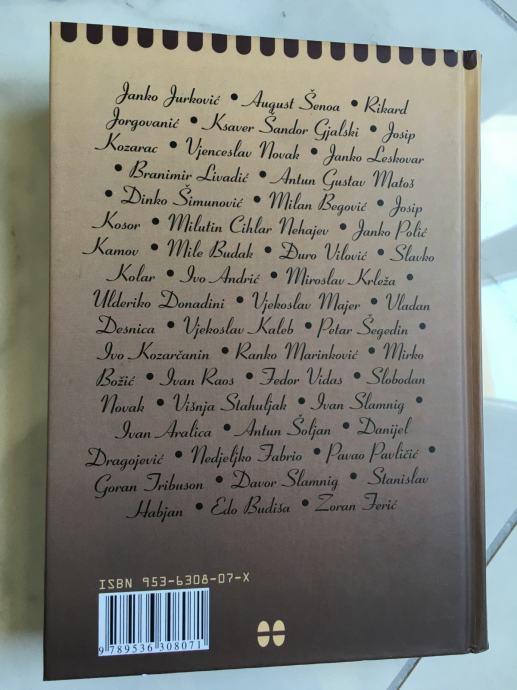 Janko Jurković • August Šenoa • Rikard
Jorgovanić • Ksaver Šandor Gjalski • Josip
Kozarac • Vjenceslav Novak • Janko Leskovar
• Branimir Livadić • Antun Gustav Matoš
• Dinko Šimunović • Milan Begović • Josip
Kosor • Milutin Cihlar Nehajev • Janko Polić
Kamov • Mile Budak • Đuro Vilović • Slavko
Kolar • Ivo Andrić • Miroslav Krleža •
Ulderiko Donadini • Vjekoslav Majer • Vladan
Desnica • Vjekoslav Kaleb • Petar Šegedin •
Ivo Kozarčanin • Ranko Marinković • Mirko
Božić • Ivan Raos • Fedor Vidas • Slobodan
Novak • Višnja Stahuljak • Ivan Slamnig •
Ivan Aralica • Antun Šoljan • Danijel
Dragojević • Nedjeljko Fabrio • Pavao Pavličić •
Goran Tribuson • Davor Slamnig • Stanislav
Habjan • Edo Budiša • Zoran Ferić
ISBN 953-6308-07-X
9 789536 308071